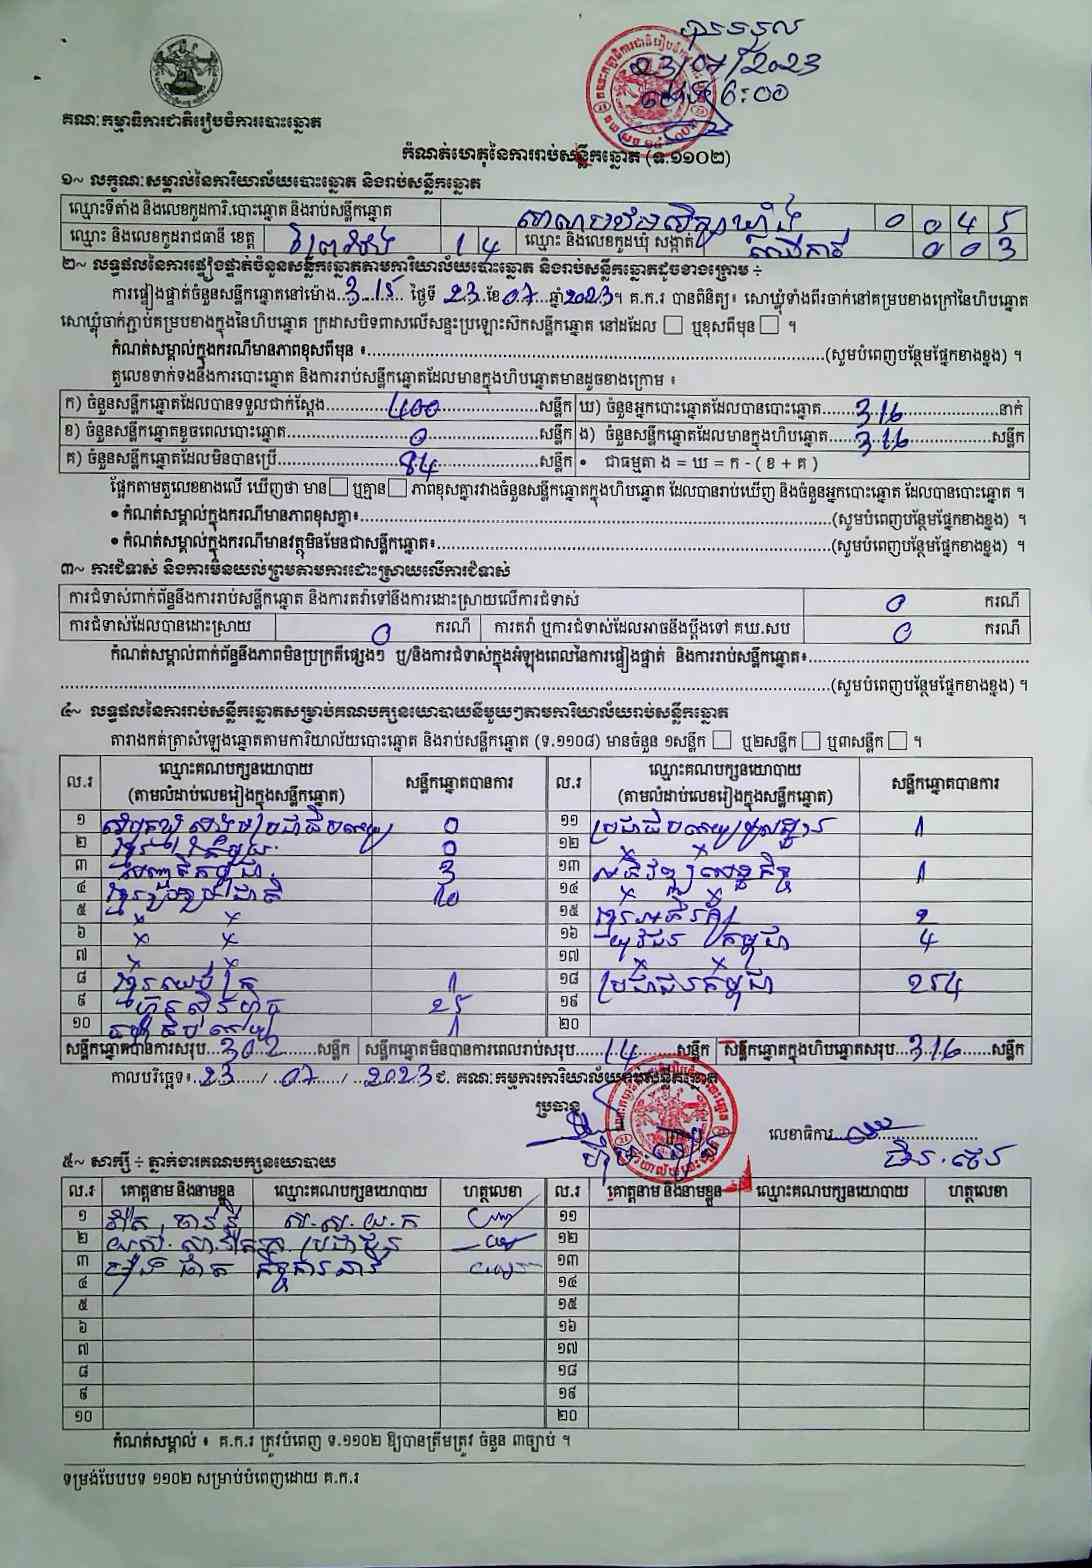 បានទទួល
23/07/2023
ម៉ោង 6:00
គណៈកម្មាធិការជាតិរៀបចំការបោះឆ្នោត
កំណត់ហេតុនៃការរាប់សន្លឹកឆ្នោត (ទ.១១០២)
១~ លក្ខណៈសម្គាល់នៃការិយាល័យបោះឆ្នោត និងរាប់សន្លឹកឆ្នោត
ឈ្មោះទីតាំង និងលេខកូដការិ.បោះឆ្នោត និងរាប់សន្លឹកឆ្នោត 0 0 4 5
ឈ្មោះ និងលេខកូដរាជធានី ខេត្ត ព្រៃវែង 1 4 ឈ្មោះ និងលេខកូដឃុំ សង្កាត់ 0 0 3
២~ លទ្ធផលនៃការផ្ទៀងផ្ទាត់ចំនួនសន្លឹកឆ្នោតតាមការិយាល័យបោះឆ្នោត និងរាប់សន្លឹកឆ្នោតដូចខាងក្រោម ÷
ការផ្ទៀងផ្ទាត់ចំនួនសន្លឹកឆ្នោតនៅម៉ោង..3..15.. ថ្ងៃទី 23.ខែ.07...ឆ្នាំ2023។ គ.ក.រ បានពិនិត្យ៖ សោឃ្លុំទាំងពីរចាក់នៅគម្របខាងក្រៅនៃហិបឆ្នោត
សោឃ្លុំចាក់ភ្ជាប់គម្របខាងក្នុងនៃហិបឆ្នោត ក្រដាសបិទពាសលើសន្ទះប្រឡោះស៊កសន្លឹកឆ្នោត នៅដដែល □ ឬខុសពីមុន □ ។
កំណត់សម្គាល់ក្នុងករណីមានភាពខុសពីមុន ៖..........(សូមបំពេញបន្ថែមផ្នែកខាងខ្នង) ។
តួលេខទាក់ទងនឹងការបោះឆ្នោត និងការរាប់សន្លឹកឆ្នោតដែលមានក្នុងហិបឆ្នោតមានដូចខាងក្រោម ៖
ក) ចំនួនសន្លឹកឆ្នោតដែលបានទទួលជាក់ស្តែង......400......សន្លឹក ឃ) ចំនួនអ្នកបោះឆ្នោតដែលបានបោះឆ្នោត......316......នាក់
ខ) ចំនួនសន្លឹកឆ្នោតខូចពេលបោះឆ្នោត......0......សន្លឹក ង) ចំនួនសន្លឹកឆ្នោតដែលមានក្នុងហិបឆ្នោត......316......សន្លឹក
គ) ចំនួនសន្លឹកឆ្នោតដែលមិនបានប្រើ......84......សន្លឹក • ជាធម្មតា ង = ឃ = ក - ( ខ + គ )
ផ្អែកតាមតួលេខខាងលើ ឃើញថា មាន□ ឬគ្មាន□ ភាពខុសគ្នារវាងចំនួនសន្លឹកឆ្នោតក្នុងហិបឆ្នោត ដែលបានរាប់ឃើញ និងចំនួនអ្នកបោះឆ្នោត ដែលបានបោះឆ្នោត ។
• កំណត់សម្គាល់ក្នុងករណីមានភាពខុសគ្នា៖..........(សូមបំពេញបន្ថែមផ្នែកខាងខ្នង) ។
• កំណត់សម្គាល់ក្នុងករណីមានវត្ថុមិនមែនជាសន្លឹកឆ្នោត៖..........(សូមបំពេញបន្ថែមផ្នែកខាងខ្នង) ។
៣~ ការជំទាស់ និងការមិនយល់ព្រមតាមការដោះស្រាយលើការជំទាស់
ការជំទាស់ពាក់ព័ន្ធនឹងការរាប់សន្លឹកឆ្នោត និងការតវ៉ាទៅនឹងការដោះស្រាយលើការជំទាស់ 0 ករណី
ការជំទាស់ដែលបានដោះស្រាយ 0 ករណី ការតវ៉ា ឬការជំទាស់ដែលអាចនឹងប្តឹងទៅ គឃ.សប 0 ករណី
កំណត់សម្គាល់ពាក់ព័ន្ធនឹងភាពមិនប្រក្រតីផ្សេងៗ ឬ/និងការជំទាស់ក្នុងអំឡុងពេលនៃការផ្ទៀងផ្ទាត់ និងការរាប់សន្លឹកឆ្នោត៖..........
..........(សូមបំពេញបន្ថែមផ្នែកខាងខ្នង) ។
៤~ លទ្ធផលនៃការរាប់សន្លឹកឆ្នោតសម្រាប់គណបក្សនយោបាយនីមួយៗតាមការិយាល័យរាប់សន្លឹកឆ្នោត
តារាងកត់ត្រាសំឡេងឆ្នោតតាមការិយាល័យបោះឆ្នោត និងរាប់សន្លឹកឆ្នោត (ទ.១១០៨) មានចំនួន ១សន្លឹក □ ឬ២សន្លឹក □ ឬ៣សន្លឹក □ ។
ល.រ ឈ្មោះគណបក្សនយោបាយ (តាមលំដាប់លេខរៀងក្នុងសន្លឹកឆ្នោត) សន្លឹកឆ្នោតបានការ ល.រ ឈ្មោះគណបក្សនយោបាយ (តាមលំដាប់លេខរៀងក្នុងសន្លឹកឆ្នោត) សន្លឹកឆ្នោតបានការ
១ សំបុកឃ្មុំសង្គមប្រជាធិបតេយ្យ 0 ១១ ប្រជាធិបតេយ្យមូលដ្ឋាន 1
២ ខ្មែរ 0 ១២ x x
៣ កម្ពុជា 3 ១៣ 1
៤ ខ្មែររួបរួមជាតិ 10 ១៤ x x
៥ x x ១៥ ខ្មែរអភិរក្ស 2
៦ x x ១៦ យុវជនកម្ពុជា 4
៧ x x ១៧ x x
៨ ខ្មែរឈប់ក្រ 1 ១៨ ប្រជាជនកម្ពុជា 254
៩ ហ៊្វុនស៊ិនប៉ិច 25 ១៩
១០ 1 ២០
សន្លឹកឆ្នោតបានការសរុប...302.......សន្លឹក សន្លឹកឆ្នោតមិនបានការពេលរាប់សរុប.....14.....សន្លឹក សន្លឹកឆ្នោតក្នុងហិបឆ្នោតសរុប...316......សន្លឹក
កាលបរិច្ឆេទ៖..23....../..07....../..2023 ជ. គណៈកម្មការការិយាល័យរាប់សន្លឹកឆ្នោត
ប្រធាន
លេខាធិការ
៥~ សាក្សី ÷ ភ្នាក់ងារគណបក្សនយោបាយ
ល.រ គោត្តនាម និងនាមខ្លួន ឈ្មោះគណបក្សនយោបាយ ហត្ថលេខា ល.រ គោត្តនាម និងនាមខ្លួន ឈ្មោះគណបក្សនយោបាយ ហត្ថលេខា
១ ស.ស.យ.ក ១១
២ ប្រជាជន ១២
៣ ១៣
៤ ១៤
៥ ១៥
៦ ១៦
៧ ១៧
៨ ១៨
៩ ១៩
១០ ២០
កំណត់សម្គាល់ ៖ គ.ក.រ ត្រូវបំពេញ ទ.១១០២ ឱ្យបានត្រឹមត្រូវ ចំនួន ៣ច្បាប់ ។
ទម្រង់បែបបទ ១១០២ សម្រាប់បំពេញដោយ គ.ក.រ